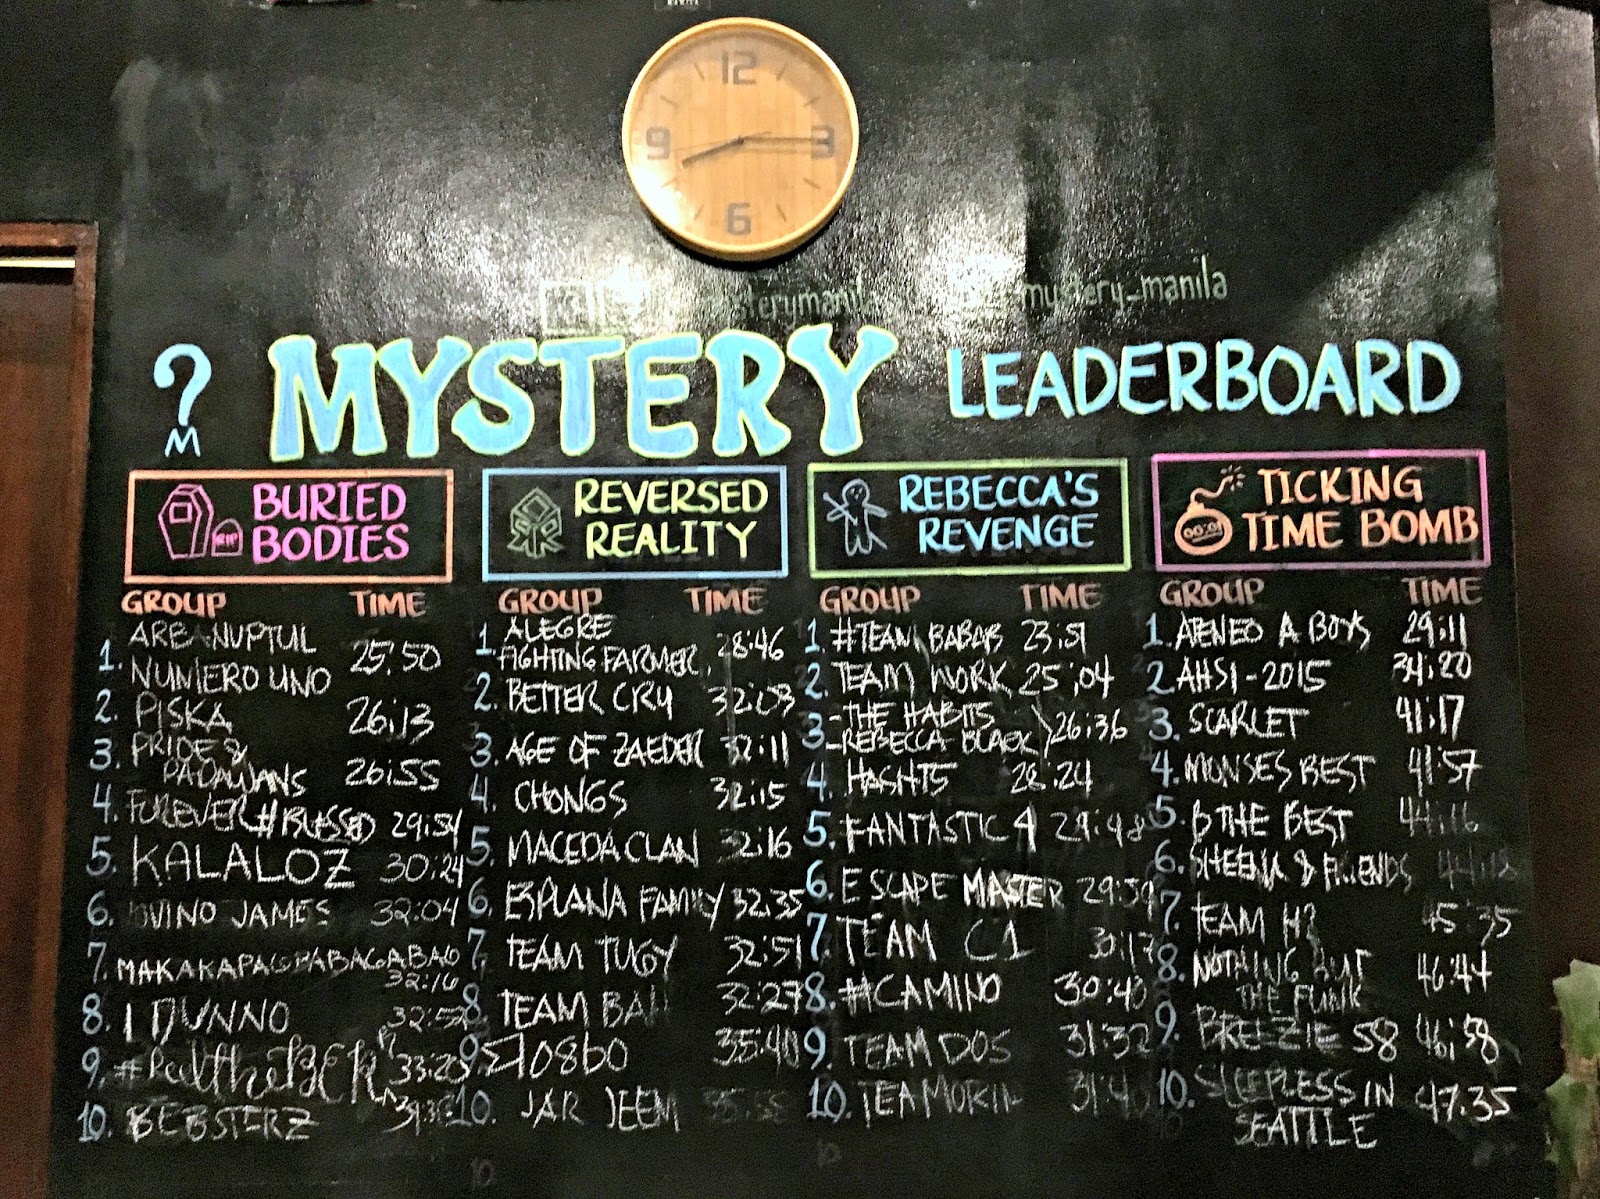 12
9
3
6
mystery_manila
?
M
MYSTERY LEADERBOARD
BURIED
BODIES
RIP
GROUP TIME
1. ARBANUPTUL
NUMERO UNO 25:50
2. PISKA 26:13
3. PRIDE &
PADAWANS 26:55
4. FOREVER#BLESSED 29:54
5. KALALOZ 30:24
6. JAMES 32:04
7. MAKAKAPAGPABAGABAG
32:16
8. I DUNNO 32:52
9.
10. BEBSTERZ
REVERSED
REALITY
GROUP TIME
1. ALEGRE
FIGHTING FARMER 28:46
2. BETTER CRY 32:03
3. AGE OF ZAEDER 32:11
4. CHONGS 32:15
5. MACEDA CLAN 32:16
6. ESPLANA FAMILY 32:35
7. TEAM TUGY 32:51
8. TEAM 32:27
9. 35:40
10. JAR JEEM
REBECCA'S
REVENGE
GROUP TIME
1. #TEAM BABAB 23:51
2. TEAM WORK 25:04
3. -THE HABITS
-REBECCA BLACK 26:36
4. HASHTS 28:24
5. FANTASTIC 4 29:48
6. ESCAPE MASTER 29:59
7. TEAM C1 30:17
8. #CAMINO 30:40
9. TEAM DOS 31:32
10.
TICKING
TIME BOMB
00:01
GROUP TIME
1. ATENEO A BOYS 29:11
2. AHSI-2015 34:20
3. SCARLET 41:17
4. MONSES BEST 41:57
5. B THE BEST 44:16
6. SHEENA & FRIENDS
7. TEAM 45:35
8. NOTHING BUT
THE FUNK 46:44
9. BREEZIE 58 46:58
10. SLEEPLESS IN
SEATTLE 47:35